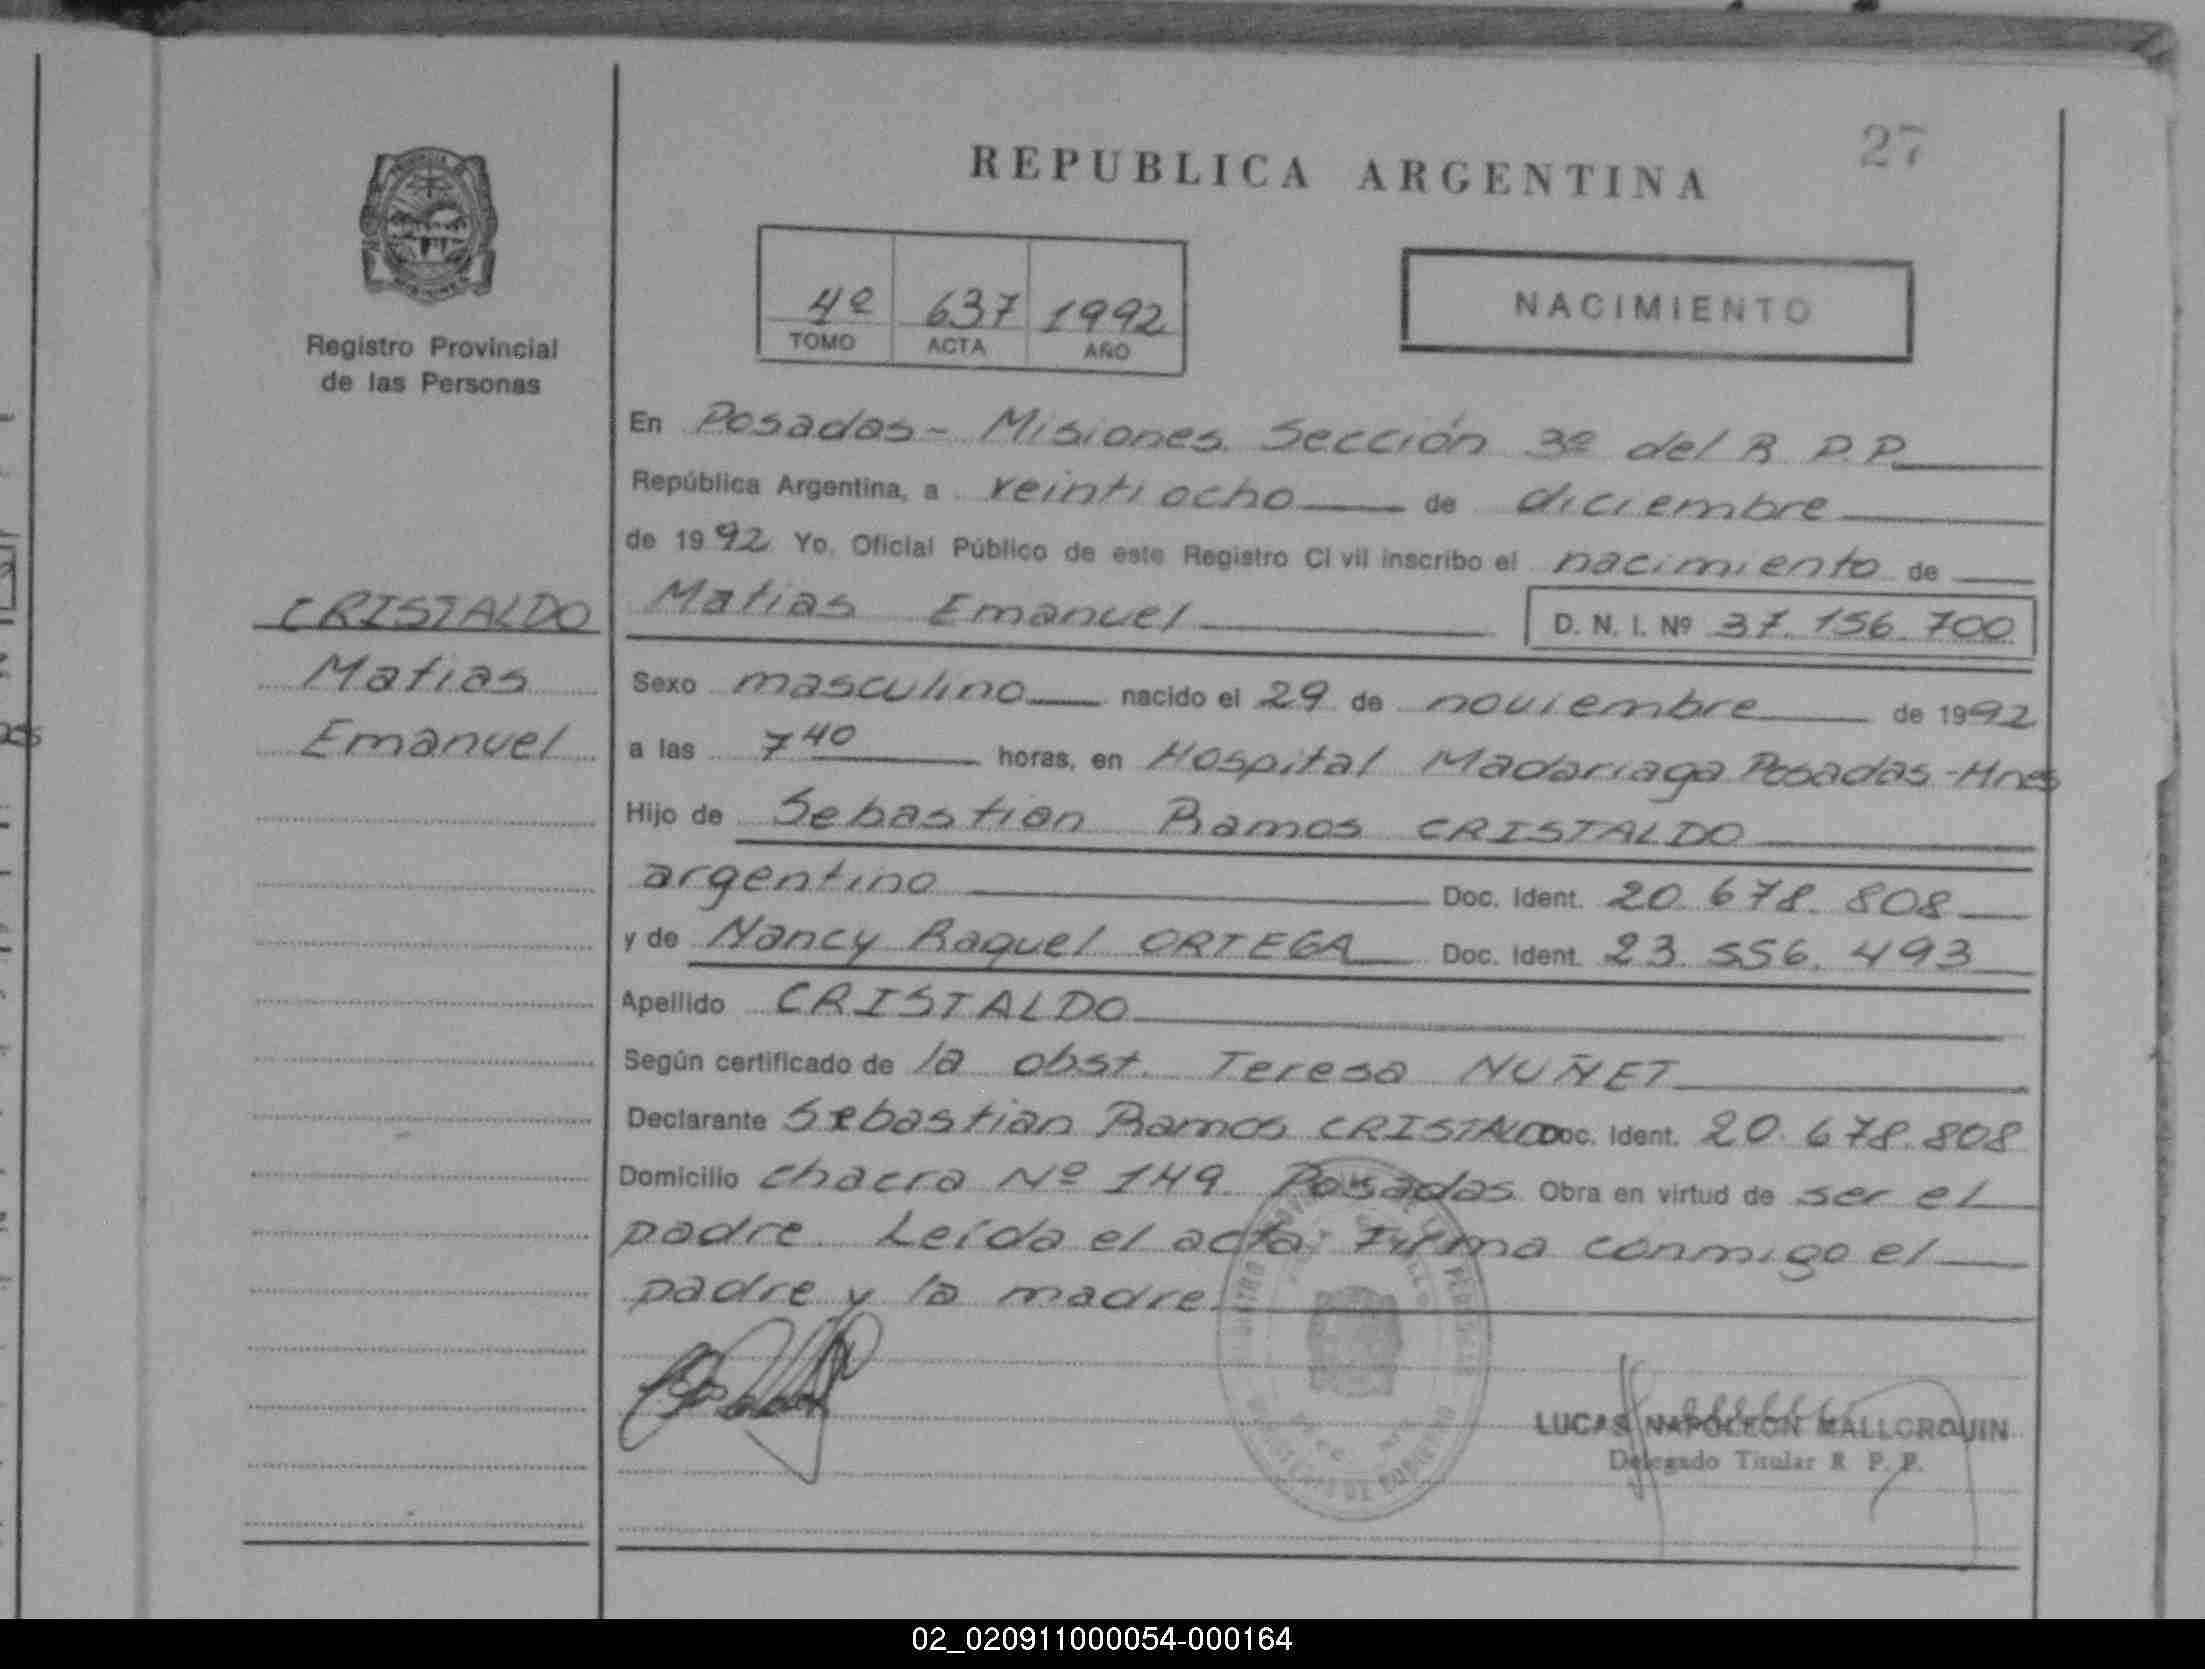 27
REPUBLICA ARGENTINA
4º 637 1992
TOMO ACTA AÑO
NACIMIENTO
Registro Provincial
de las Personas
En Posadas - Misiones. Sección 3º del R. P. P.
República Argentina, a veintiocho de diciembre
de 1992 Yo, Oficial Público de este Registro Civil inscribo el nacimiento de
Matias Emanuel D. N. I. Nº 37.156.700
CRISTALDO
Matias
Emanuel
Sexo masculino nacido el 29 de noviembre de 1992
a las 7 40 horas, en Hospital Madariaga Posadas - Mnes
Hijo de Sebastian Ramos CRISTALDO
argentino Doc. Ident. 20.678.808
y de Nancy Raquel ORTEGA Doc. Ident. 23.556.493
Apellido CRISTALDO
Según certificado de la obst. Teresa NUÑET
Declarante Sebastian Ramos CRISTALDO Doc. Ident. 20.678.808
Domicilio chacra Nº 149. Posadas Obra en virtud de ser el
padre. Leída el acta: Firma conmigo el
padre y la madre.
LUCAS NAPOLEON MALLORQUIN
Delegado Titular R. P. P.
02_020911000054-000164